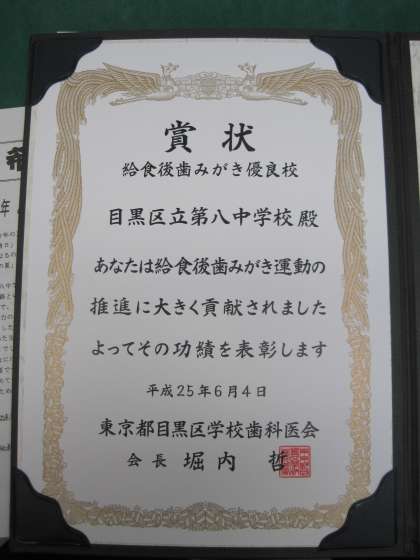 賞状
給食後歯みがき優良校
目黒区立第八中学校殿
あなたは給食後歯みがき運動の
推進に大きく貢献されました
よってその功績を表彰します
平成25年6月4日
東京都目黒区学校歯科医会
会長 堀内 哲